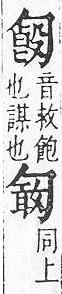 音救飽
也謀也
同上